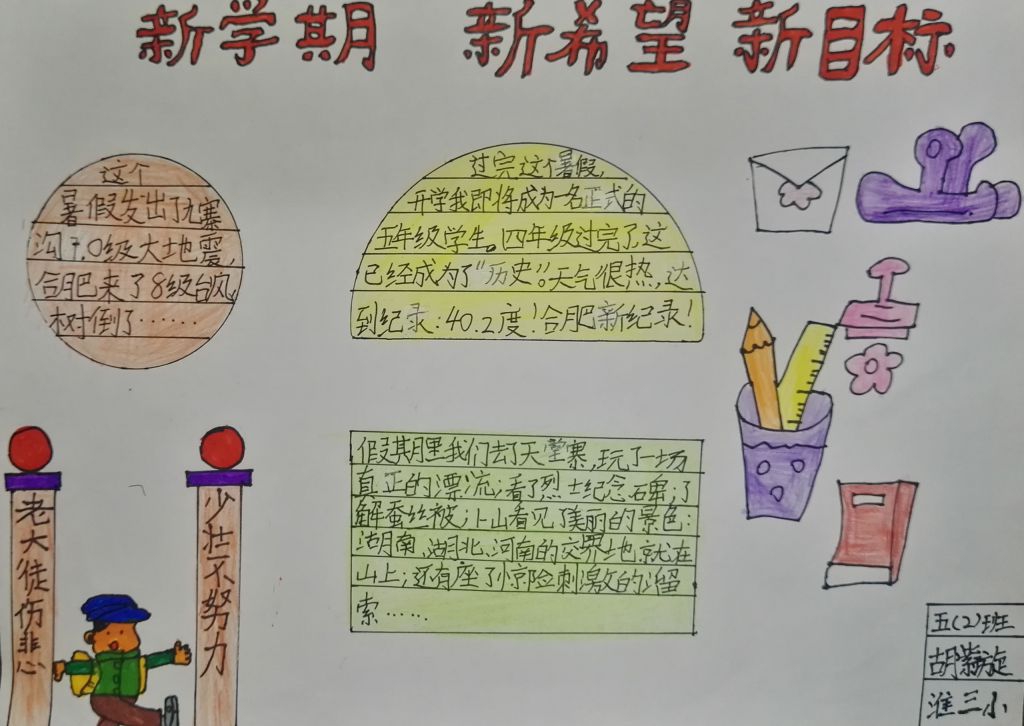 新学期 新希望 新目标
这个
暑假发出了九寨
沟7.0级大地震,
合肥来了8级台风,
树倒了……
过完这个暑假,
开学我即将成为一名正式的
五年级学生。四年级过完了,这
已经成为了“历史”。天气很热,达
到纪录:40.2度!合肥新纪录!
假期里我们去了天堂寨,玩了一场
真正的漂流;看了烈士纪念碑;了
解蚕丝被;上山看见了美丽的景色:
湖南、湖北、河南的交界地就在
山上;还有座了小惊险刺激的溜
索……
少壮不努力
老大徒伤悲
五(2)班
胡旋
淮三小